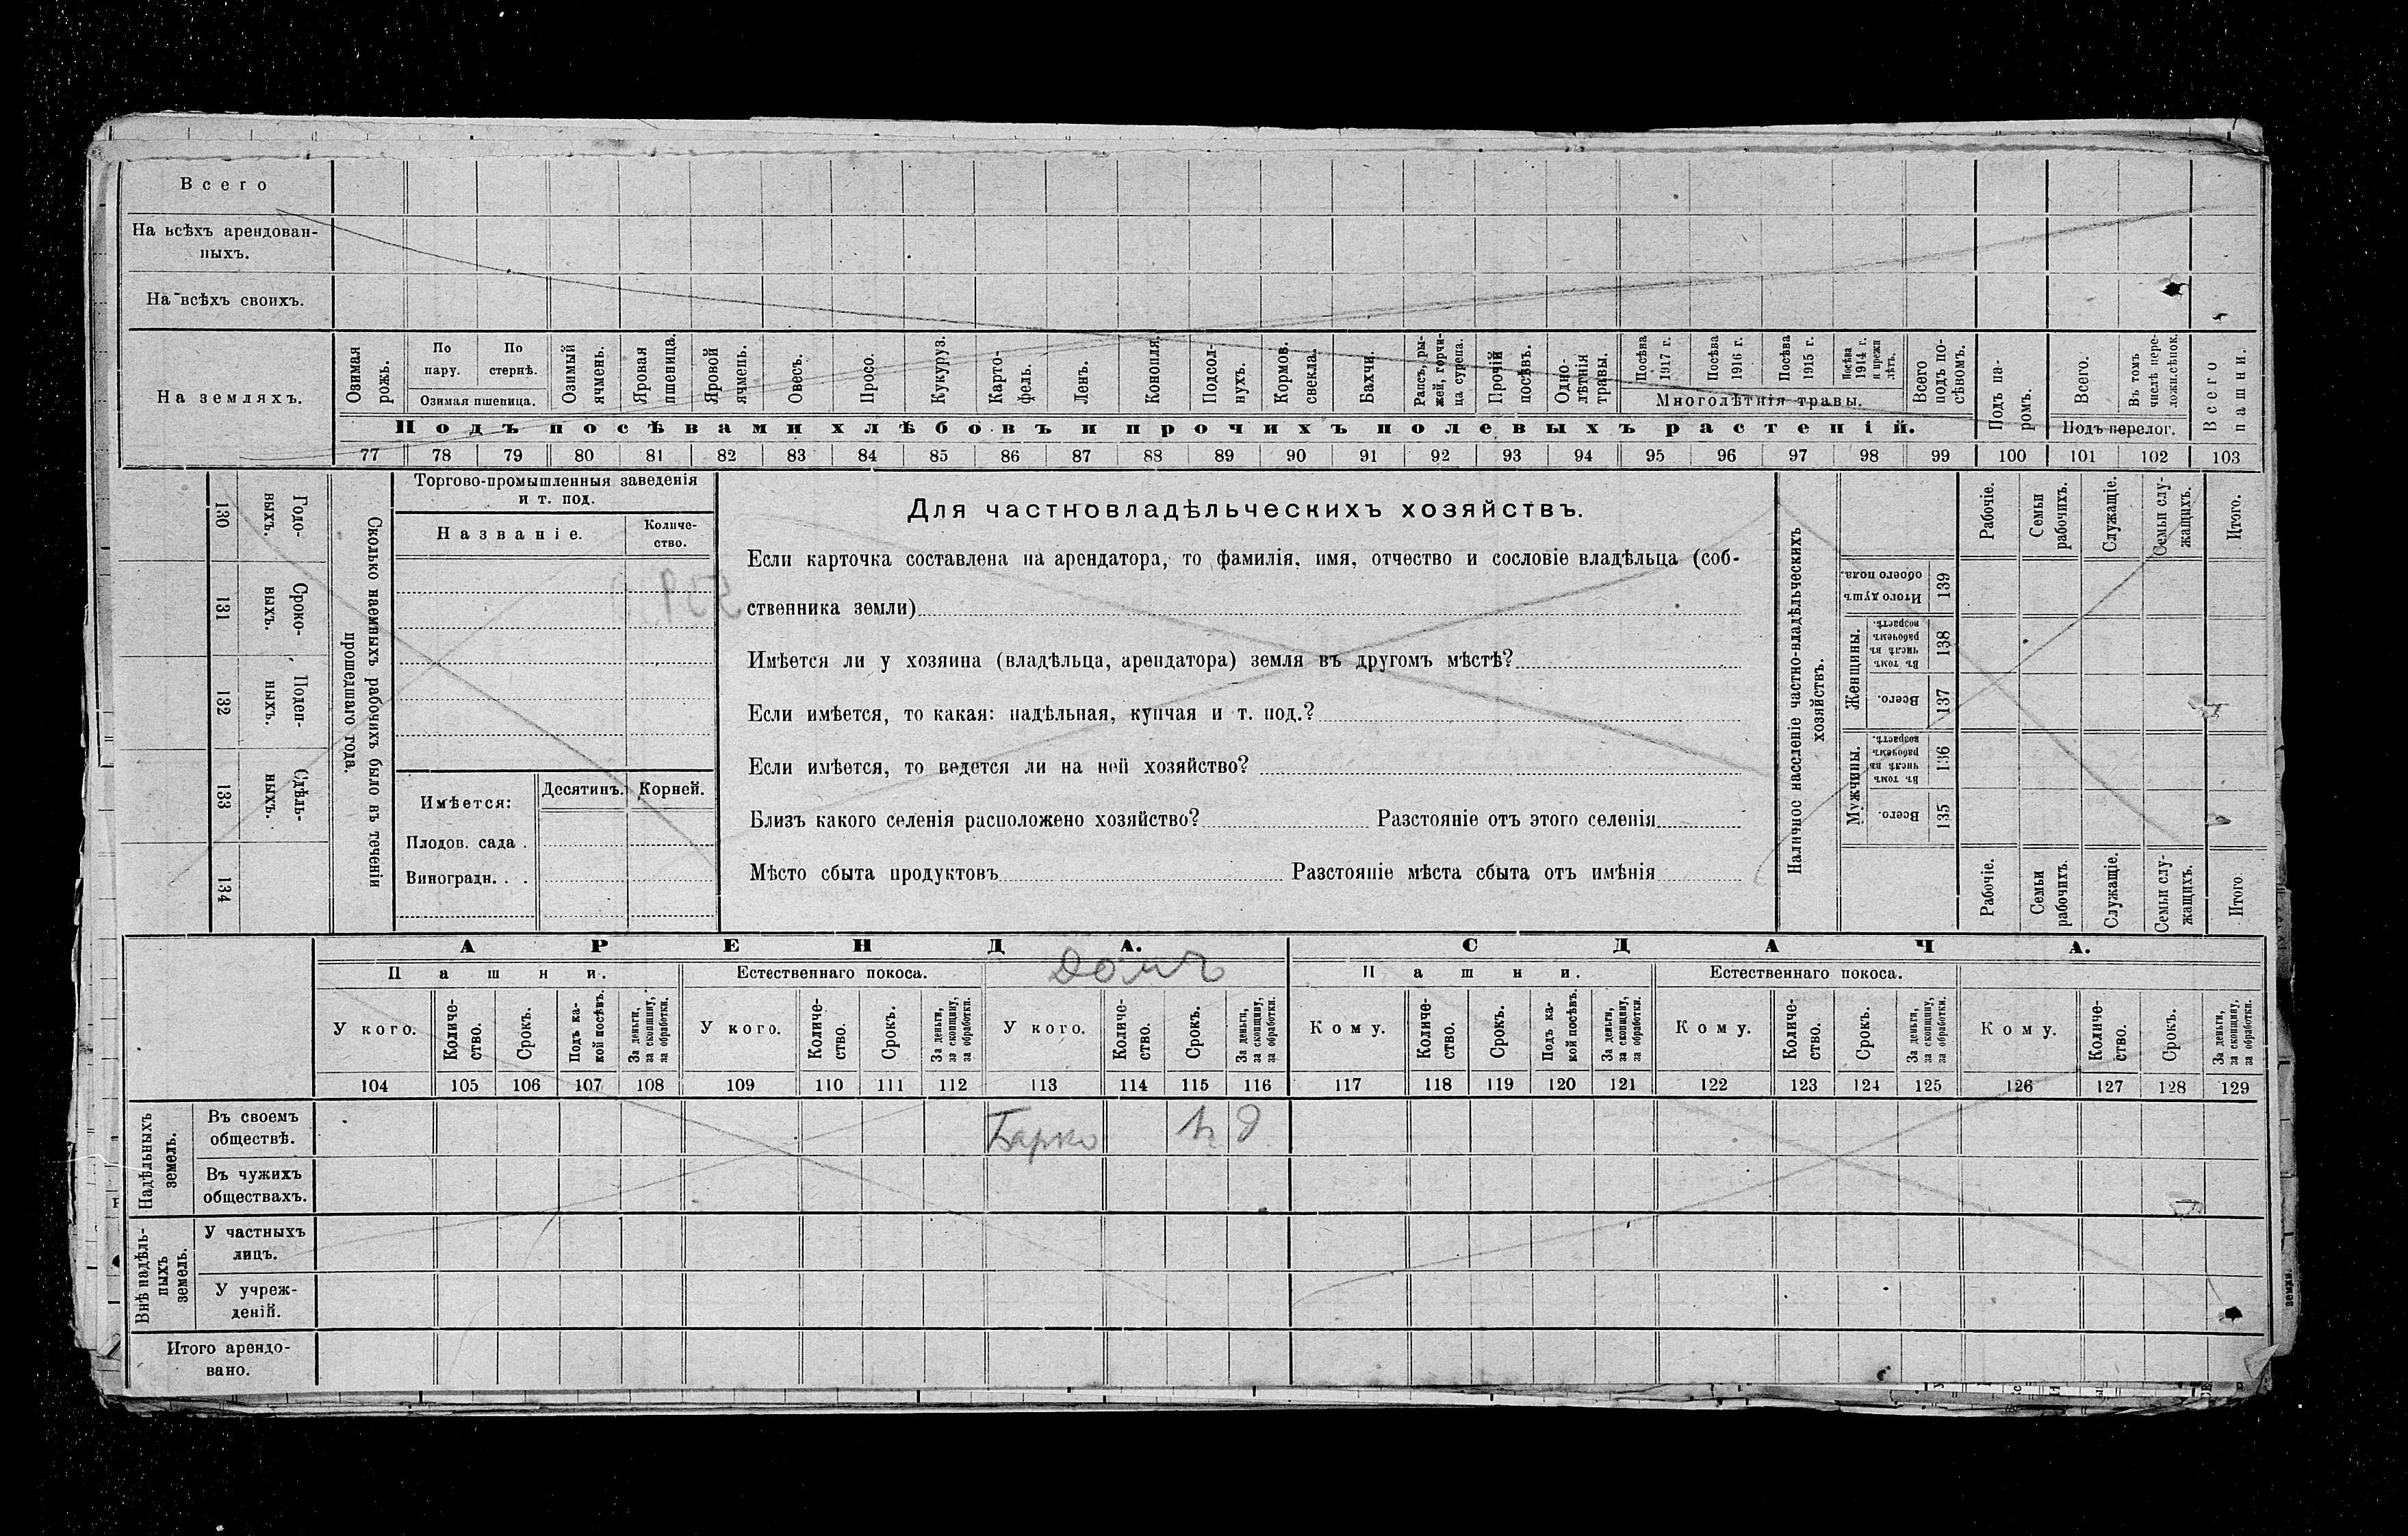 Всего
На всѣхъ арендован-
ныхъ.
На всѣхъ своихъ.
На земляхъ.
Озимая рожь.
По пару.
По стернѣ.
Озимая пшеница.
Озимый ячмень.
Яровая пшеница.
Яровой ячмень.
Овесъ.
Просо.
Кукуруз.
Карто-
фель.
Ленъ.
Конопля.
Подсол-
нухъ.
Кормов.
свекла.
Бахчи.
Рапсъ, ры-
жей, горчи-
ца сурепа.
Прочій посѣвъ.
Одно-
лѣтнія
травы.
Посѣва 1917 г.
Посѣва 1916 г.
Посѣва 1915 г.
Посѣва 1914 г. и прежн лѣтъ.
Многолѣтнія травы.
Всего подъ по-
сѣвомъ.
Подъ па-
ромъ.
Всего.
Въ томъ числѣ пере-
ложн.сѣнок.
Подъ перелог.
Всего пашни.
Подъ посѣвами хлѣбовъ и прочихъ полевыхъ растеній.
77 78 79 80 81 82 83 84 85 86 87 88 89 90 91 92 93 94 95 96 97 98 99 100 101 102 103
Сколько наемныхъ рабочихъ было въ теченіи
прошедшаго года.
Годо-
выхъ.
130
Сроко-
выхъ.
131
Поден-
ныхъ.
132
Сдѣль-
ныхъ.
133
134
Торгово-промышленныя заведенія
и т. под.
Названіе.
Количе-
ство.
Имѣется:
Десятинъ.
Корней.
Плодов. сада .
Виноградн. . .
Для частновладѣльческихъ хозяйствъ.
Если карточка составлена на арендатора, то фамилія, имя, отчество и сословіе владѣльца (соб-
ственника земли)
Имѣется ли у хозяина (владѣльца, арендатора) земля въ другомъ мѣстѣ?
Если имѣется, то какая: надѣльная, купчая и т. под.?
Если имѣется, то ведется ли на ней хозяйство?
Близъ какого селенія расположено хозяйство? Разстояніе отъ этого селенія
Мѣсто сбыта продуктовъ Разстояніе мѣста сбыта отъ имѣнія
Наличное населеніе частно-владѣльческихъ
хозяйствъ.
Рабочіе.
Семьи рабочихъ.
Служащіе.
Семьи слу-
жащихъ.
Итого.
Итого душъ обоего пола.
139
Женщины.
Въ томъ числѣ въ рабочемъ возрастѣ.
138
Всего.
137
Мужчины.
Въ томъ числѣ въ рабочемъ возрастѣ.
136
Всего.
135
Рабочіе.
Семьи рабочихъ.
Служащіе.
Семьи слу-
жащихъ.
Итого.
АРЕНДА.
СДАЧА.
Пашни.
Естественнаго покоса.
Домъ
Пашни.
Естественнаго покоса.
У кого.
Количе-
ство.
Срокъ.
Подъ ка-
кой посѣвъ.
За деньги,
за скопщину,
за обработки.
У кого.
Количе-
ство.
Срокъ.
За деньги,
за скопщину,
за обработки.
У кого.
Количе-
ство.
Срокъ.
За деньги,
за скопщину,
за обработки.
Кому.
Количе-
ство.
Срокъ.
Подъ ка-
кой посѣвъ.
За деньги,
за скопщину,
за обработки.
Кому.
Количе-
ство.
Срокъ.
За деньги,
за скопщину,
за обработки.
Кому.
Количе-
ство.
Срокъ.
За деньги,
за скопщину,
за обработки.
104 105 106 107 108 109 110 111 112 113 114 115 116 117 118 119 120 121 122 123 124 125 126 127 128 129
Надѣльныхъ
земель.
Въ своемъ
обществѣ.
Барко
Въ чужихъ
обществахъ.
Внѣ надѣль-
ныхъ
земель.
У частныхъ
лицъ.
У учреж-
деній.
Итого арендо-
вано.